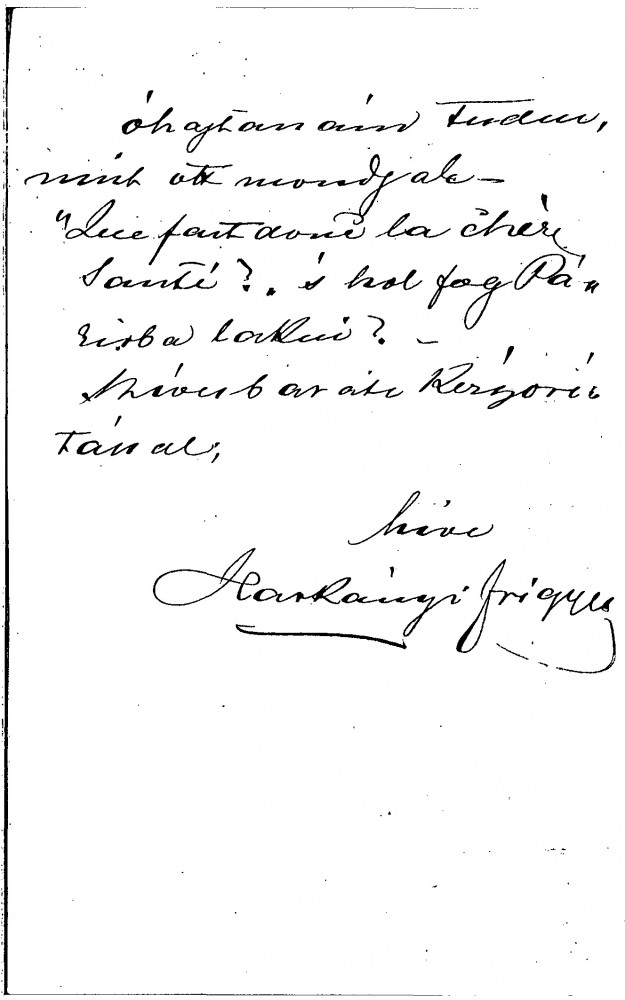 óhajtanám tudni,
mint ott mondják –
"Que fait donc la chère
Santé?" s hol fog Pá-
risba lakni? –
Szíves barátı
hive
Harkányi Frigyes